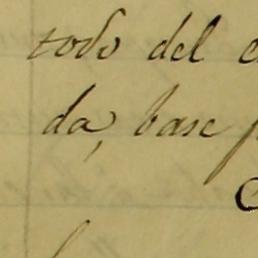 todo del
da, base